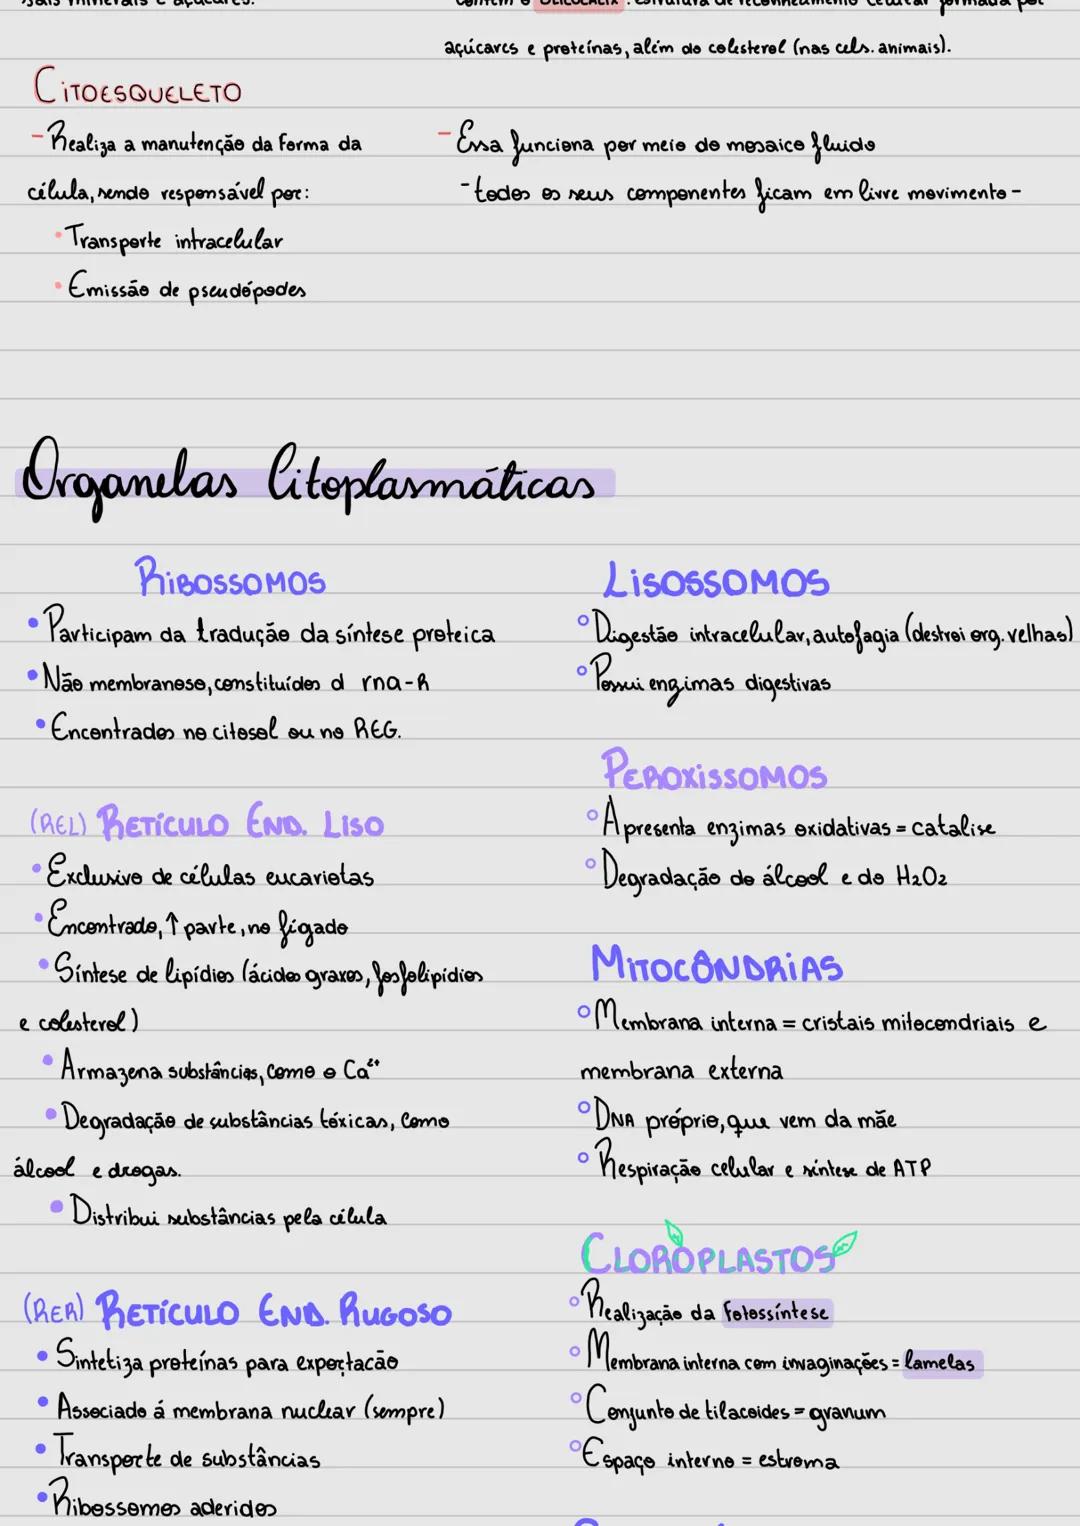 sais minerais e açúcares.
contém o GLICOCÁLIX: estrutura de reconhecimento celular formada por
açúcares e proteínas, além do colesterol (nas cels. animais).
CITOESQUELETO
- Realiza a manutenção da forma da
célula, sendo responsável por:
• Transporte intracelular
• Emissão de pseudópodes
- Essa funciona por meio do mosaico fluido
- todos os seus componentes ficam em livre movimento -
Organelas Citoplasmáticas
RIBOSSOMOS
• Participam da tradução da síntese proteica
• Não membranoso, constituídos d rna-R
• Encontrados no citosol ou no REG.
(REL) RETÍCULO END. LISO
• Exclusivo de células eucariotas
• Encontrado, ↑ parte, no fígado
• Síntese de lipídios (ácidos graxos, fosfolipídios
e colesterol)
• Armazena substâncias, como o Ca²⁺
• Degradação de substâncias tóxicas, como
álcool e drogas.
• Distribui substâncias pela célula
(RER) RETÍCULO END. RUGOSO
• Sintetiza proteínas para exportacão
• Associado á membrana nuclear (sempre)
• Transporte de substâncias
• Ribossomos aderidos
LISOSSOMOS
° Digestão intracelular, autofagia (destroi org. velhas)
° Possui enzimas digestivas
PEROXISSOMOS
° Apresenta enzimas oxidativas = catalise
° Degradação do álcool e do H₂O₂
MITOCÔNDRIAS
° Membrana interna = cristais mitocondriais e
membrana externa
° DNA próprio, que vem da mãe
° Respiração celular e síntese de ATP
CLOROPLASTOS
° Realização da fotossíntese
° Membrana interna com invaginações = lamelas
° Conjunto de tilacoides = granum
° Espaço interno = estroma